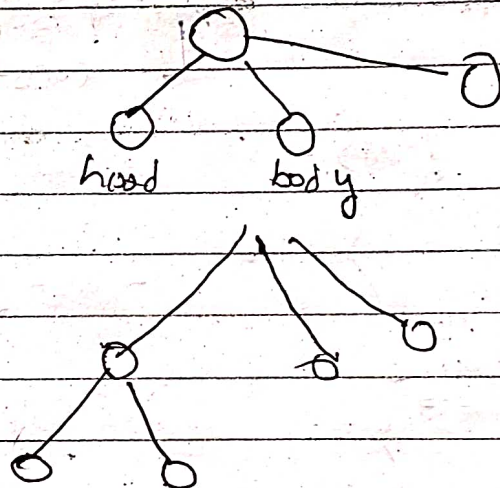 head body